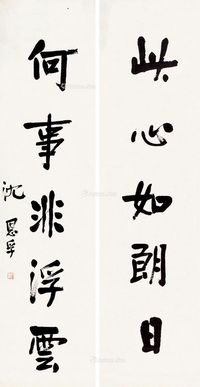 此心如朗日
何事非浮雲
沈恩孚